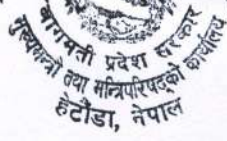 बागमती प्रदेश सरकार
मुख्यमन्त्री तथा मन्त्रिपरिषद्को कार्यालय
हेटौंडा, नेपाल